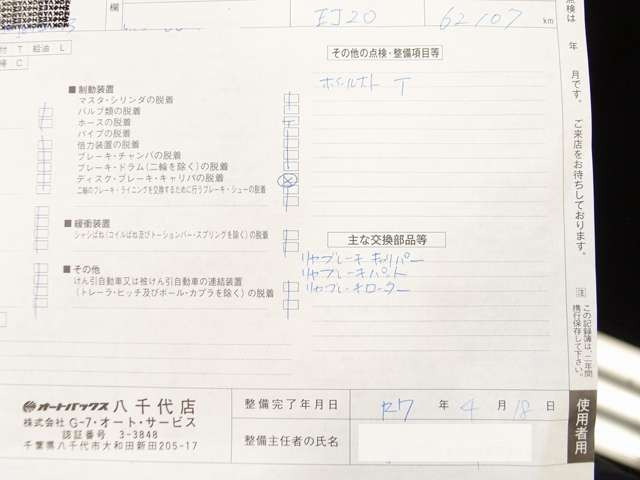 欄
EJ20
62107 km
付 T 給油 L
C
その他の点検・整備項目等
ホイールナット T
■ 制動装置
マスタ・シリンダの脱着
バルブ類の脱着
ホースの脱着
パイプの脱着
倍力装置の脱着
ブレーキ・チャンバの脱着
ブレーキ・ドラム(二輪を除く)の脱着
ディスク・ブレーキ・キャリパの脱着
二輪のブレーキ・ライニングを交換するために行うブレーキ・シューの脱着
■ 緩衝装置
シャシばね(コイルばね及びトーションバー・スプリングを除く)の脱着
■ その他
けん引自動車又は被けん引自動車の連結装置
(トレーラ・ヒッチ及びボール・カプラを除く)の脱着
主な交換部品等
リヤブレーキキャリパー
リヤブレーキパット
リヤブレーキローター
点検は 年 月です。
ご来店をお待ちしております。
注 この記録簿は、二年間
携行保存して下さい。
使用者用
オートバックス 八千代店
株式会社 G-7・オート・サービス
認証番号 3-3848
千葉県八千代市大和田新田205-17
整備完了年月日 R7 年 4 月 18 日
整備主任者の氏名